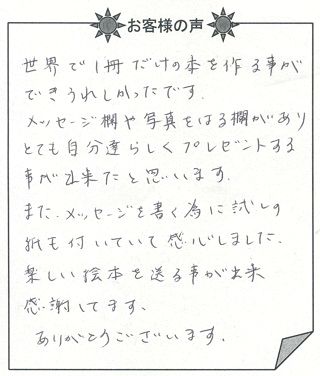 お客様の声
世界で1冊だけの本を作る事が
できうれしかったです.
メッセージ欄や写真をはる欄があり
とても自分達らしくプレゼントする
事が出来たと思います.
また、メッセージを書く為に試しの
紙も付いていて感心しました.
楽しい絵本を送る事が出来
感謝してます、
ありがとうございます.